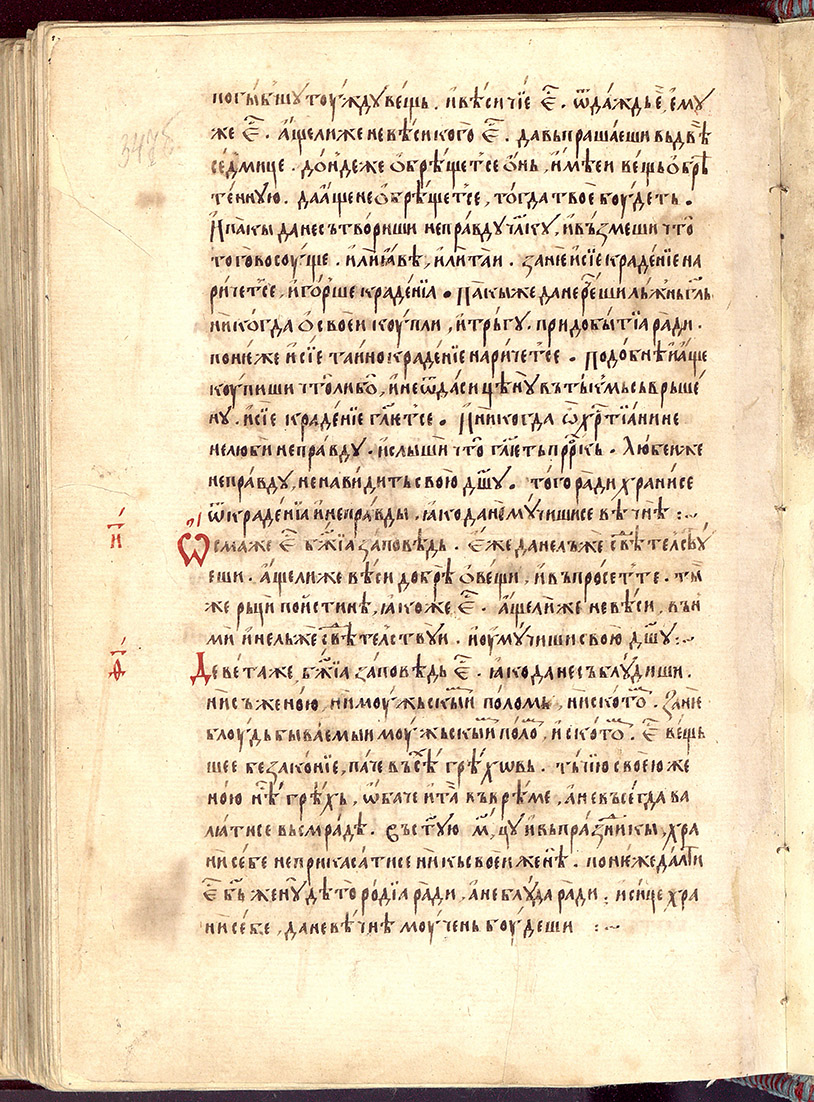 погы́бшу тоу́жду ве́щь. и҆ вѣ́си чїѐ е҆́с҃. ѿда́ждь è, є҆му́
же е҆́с҃. а҆́ще ли же не вѣ́си кого̀ е҆́с҃. да въпраша́еши въ двѣ̀
се́дмице. до́ндеже о҆брѣ́щет҇се о҆́нь, и҆мѣ́еи ве́щь о҆брѣ̀
те́нную. да а҆́ще не о҆брѣ́щет҇се, тогда̀ твоѐ боу́деть.
И҆ па́кы да не сътво́риши непра́вду чл҃ку, и҆ въ́змеши что̀
того̀во соу́ще. и҆лѝ ꙗ҆́вѣ, и҆лѝ та́и. занѐ и҆ сїѐ краде́нїе на
ри́чет҇се, и҆ го́рше краде́нїа. Па́кы же да не рече́ши лъ́жны гл҃ь
никогда̀ о҆ свое́и коу́пли, и҆ тръ́гу. придобы́тїа ра́ди.
поне́же и҆ сїѐ та́ино краде́нїе нари́чет҇се. Подо́бнѣ и҆ а҆́ще
коу́пиши что̀ либо̀, и҆ не ѿда́си цѣ́ну въ тъ́кмь съврьше́
ну. и҆ сїѐ краде́нїе гл҃ет҇се. И҆ никогда̀ ѽ хрⷭ҇тїа́нине
не лю́би непра́вду. и҆ слы́ши что̀ гл҃еть прⷪ҇ркь. Лю́беи же
непра́вду, ненави́дить свою̀ дш҃у. то́го ра́ди храни́се
ѿ краде́нїа и҆ непра́вды, ꙗ҆́ко да не му́чишисе вѣ́чнѣ :~
и҃
Ѽсмаꙗ же е҆́с҃ бж҃їа за́повѣдь. Е҆́же да не лъ́же свѣ̀телⷭ҇твоу́
еши. а҆́ще ли же вѣ́си до́брѣ о҆ ве́щи, и҆ въпро́сет те. ты̀
же рьцѝ пои҆́стинѣ, ꙗ҆́коже е҆́с҃. а҆́ще ли же не вѣ́си, вън
мѝ и҆ не лъ́же свѣ̀телствуи. и҆ оу҆му́чиши свою̀ дш҃у :~
ѳ҃
Де́вета же, бж҃їа за́повѣдь е҆́с҃. ꙗ҆́ко да не съблу́диши.
ни съ жено́ю, ни моу́жьскыи҆м по́ломь, ни ското̀м. Занѐ
блоу́дь быва́емыи моу́жьскыи҆м по́лом, и҆ ското̀м. е҆́с҃ ве́щь
шее безако́нїе, па́че въсѣ́х грѣ́хѡвь. тъ́чїю свое́ю же
но́ю нѣ́с грѣ́хь, ѻ҆ба́че и҆ та̀ въ врѣ́ме, а҆ не въсегда̀ ва
лꙗ́тисе въ смра́дѣ. Въ ст҃ую м҃ цу и҆ въ пра́здники, хра
нѝ се́бе не прикаса́тисе ни къ свое́и женѣ̀. поне́же дал ти
е҆́с҃ б҃ь жену̀ дѣторо́дїа ра́ди, а҆ не блу́да ра́ди. и҆ си́це хра
нѝ се́бе, да не вѣ́чнѣ моу́чень боу́деши :~